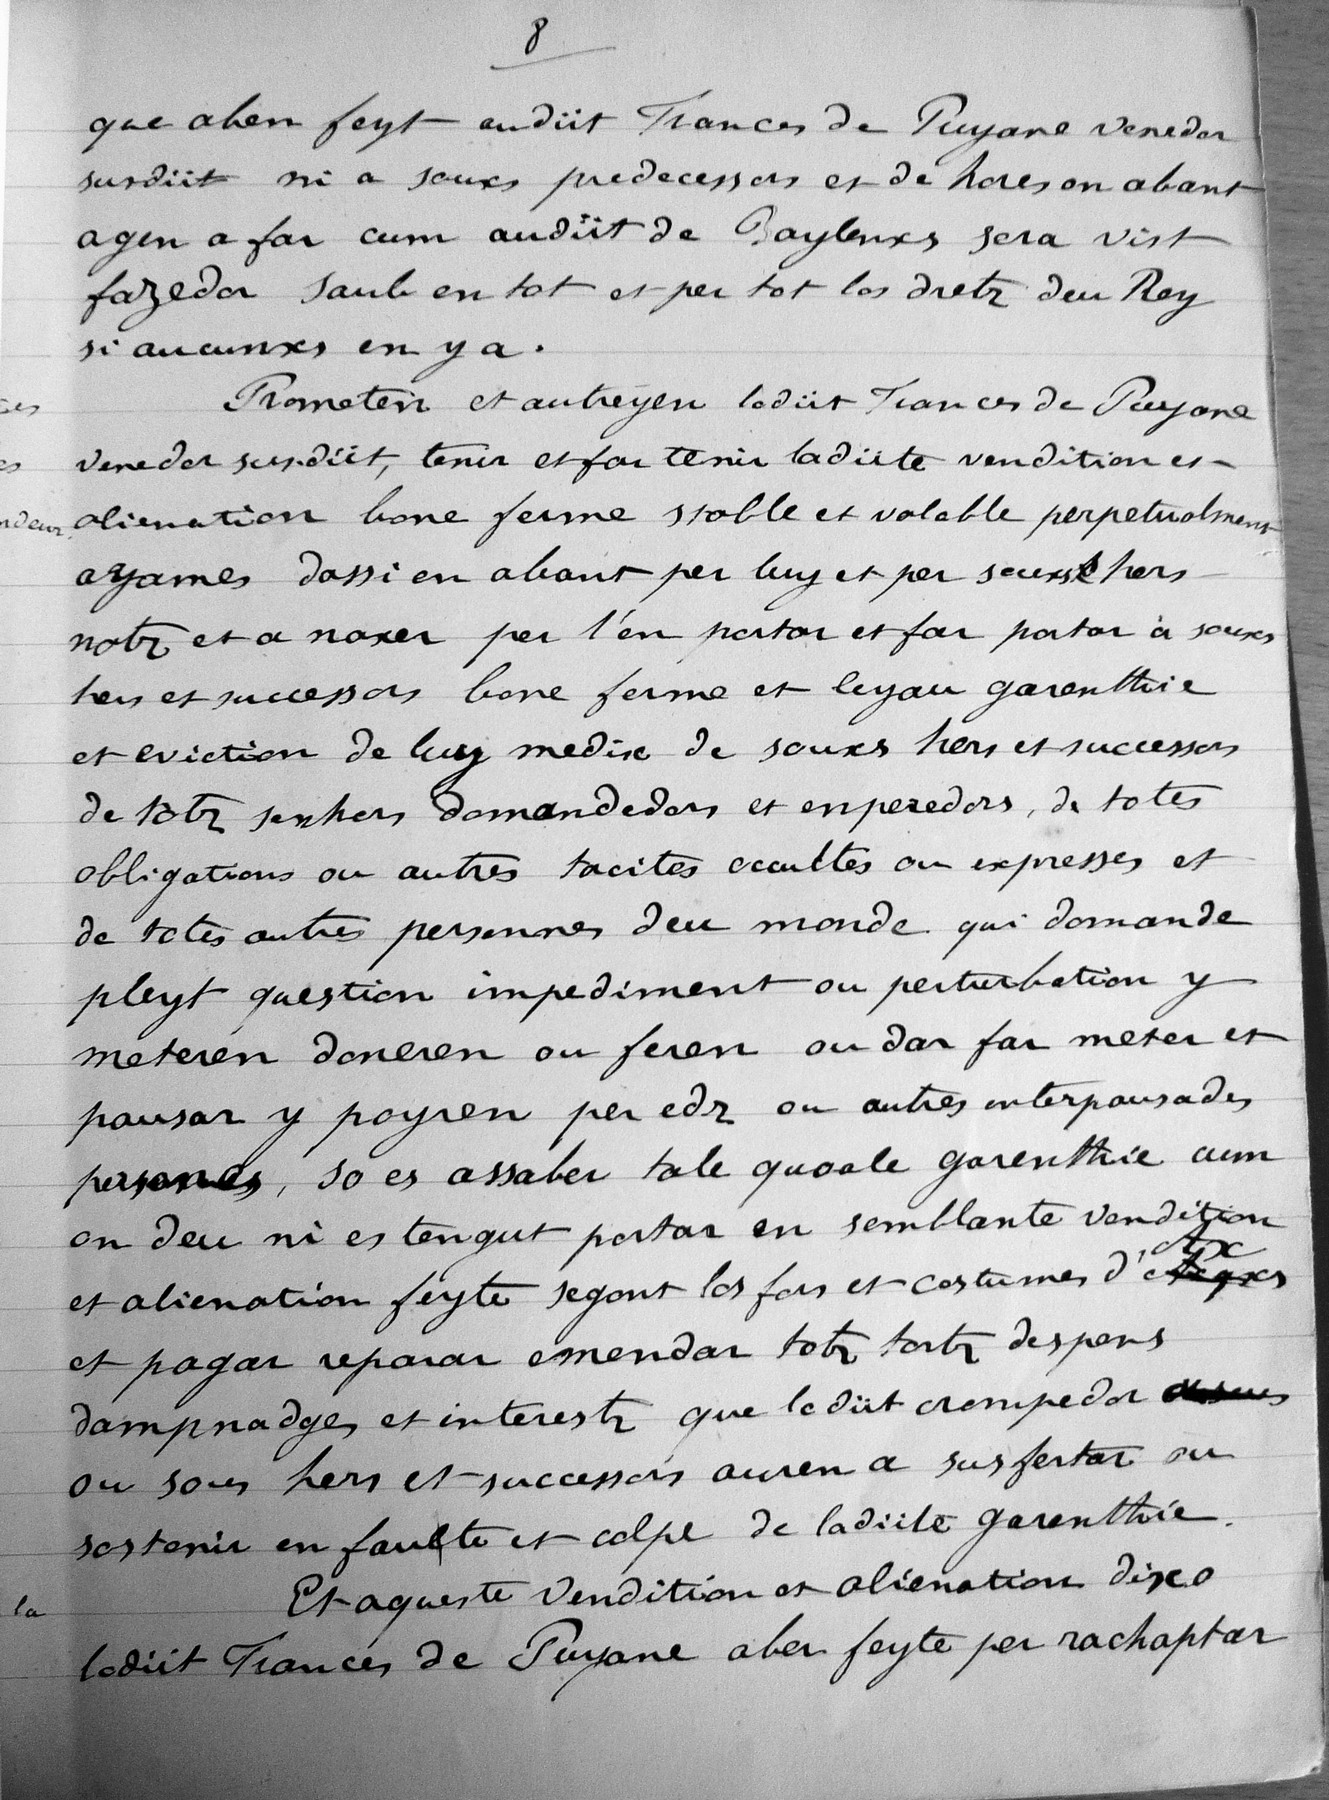 8
que aben feyt audiit Frances de Puyane venedor
susdiit ni a souxs predecessors et de hores en abant
agen a far cum audiit de Baylenxs sera vist
fazedor saub en tot et per tot los dretz deu Rey
si aucunxs en y a.
Prometen et autreyen lodiit Frances de Puyane
venedor susdiit, tenir et far tenir ladiite vendition et
alienation bone ferme stable et valable perpetualment
ayames dassi en abant per luy et per souxs hers
notz et a naxer per l'en portar et far portar à souxs
hers et successors bone ferme et leyau garenthie
et eviction de luy medix de souxs hers et successors
de totz senhors domandedors et enperedors, de totes
obligations ou autres tacites occultes ou expresses et
de totes autres personnes deu monde qui domande
pleyt question impediment ou perturbation y
meteren doneren ou feren ou dar far meter et
pausar y poyren per edz ou autres interpausades
persones, so es assaber tale quoale garenthie cum
on deu ni es tengut portar en semblante vendition
et alienation feyte segont los fors et costumes d'Ax
et pagar reparar emendar totz tortz despens
dampnadges et interestz que lodiit crompedor
ou sous hers et successors auren a susfertar ou
sostenir en faulte et colpe de ladiite garenthie.
Et aqueste vendition et alienation dixo
lodiit Frances de Puyane aber feyte per rachaptar
la